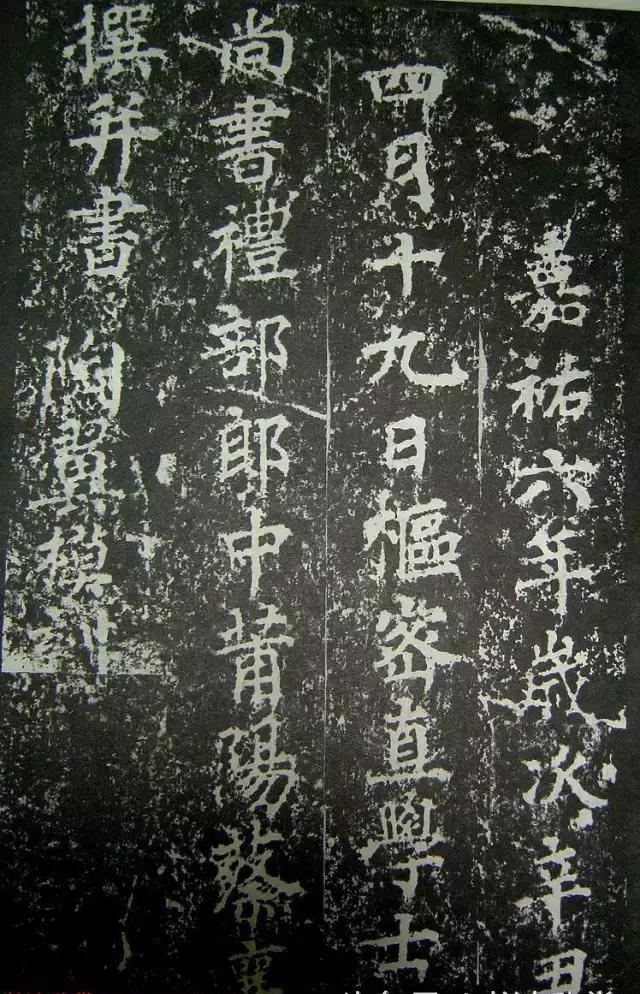 嘉祐六年歲次辛丑
四月十九日樞密直學士
尚書禮部郎中莆陽蔡襄
撰并書 陶翼模刻